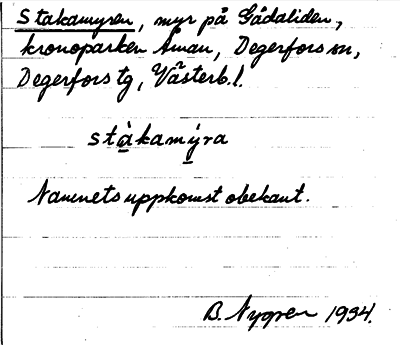 Stakamyren, myr på Gådaliden,
kronoparken Åman, Degerfors sn,
Degerfors tg, Västerb.l.
stàkamýra
Namnets uppkomst obekant.
B. Nygren 1934.